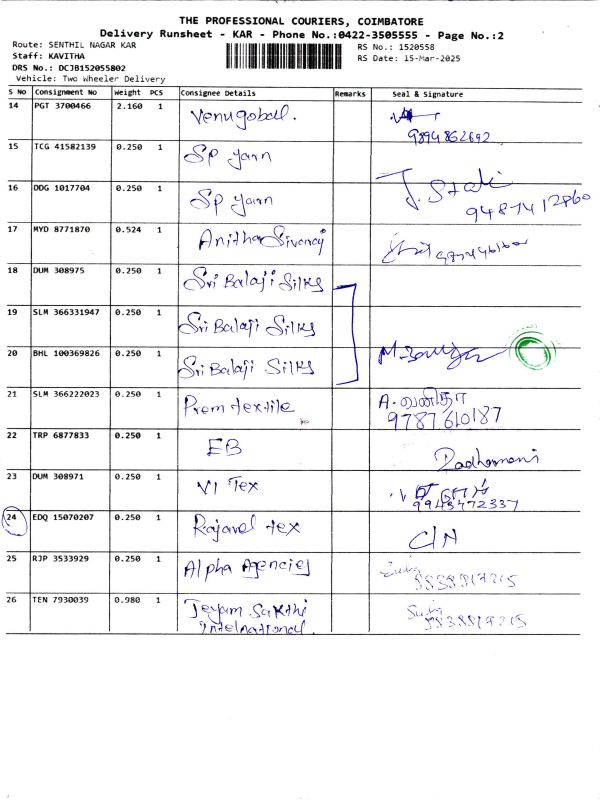 THE PROFESSIONAL COURIERS, COIMBATORE
Delivery Runsheet - KAR - Phone No.:0422-3505555 - Page No.:2
Route: SENTHIL NAGAR KAR
RS No.: 1520558
Staff: KAVITHA
RS Date: 15-Mar-2025
DRS No.: DCJB152055802
Vehicle: Two Wheeler Delivery
S No Consignment No Weight PCS Consignee Details Remarks Seal & Signature
14 PGT 3700466 2.160 1 Venugobal.
9894862692
15 TCG 41582139 0.250 1 SP yarn
16 DDG 1017704 0.250 1 SP yarn
9487412860
17 MYD 8771870 0.524 1 Anitha Sivaraj
18 DUM 308975 0.250 1 Sri Balaji Silks
19 SLM 366331947 0.250 1 Sri Balaji Silks
20 BHL 100369826 0.250 1 Sri Balaji Silks
21 SLM 366222023 0.250 1 Prem textile A. வனிதா
9787610187
22 TRP 6877833 0.250 1 EB Radhamani
23 DUM 308971 0.250 1 VI Tex
9943472337
24 EDQ 15070207 0.250 1 Rajavel tex C/N
25 RJP 3533929 0.250 1 Alpha Agencies
26 TEN 7930039 0.980 1 Jeyam Sakthi
International